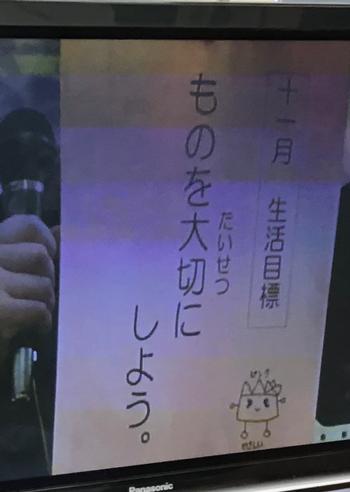 十一月 生活目標
ものを大切に
たいせつ
しよう。
やさしい
Panasonic